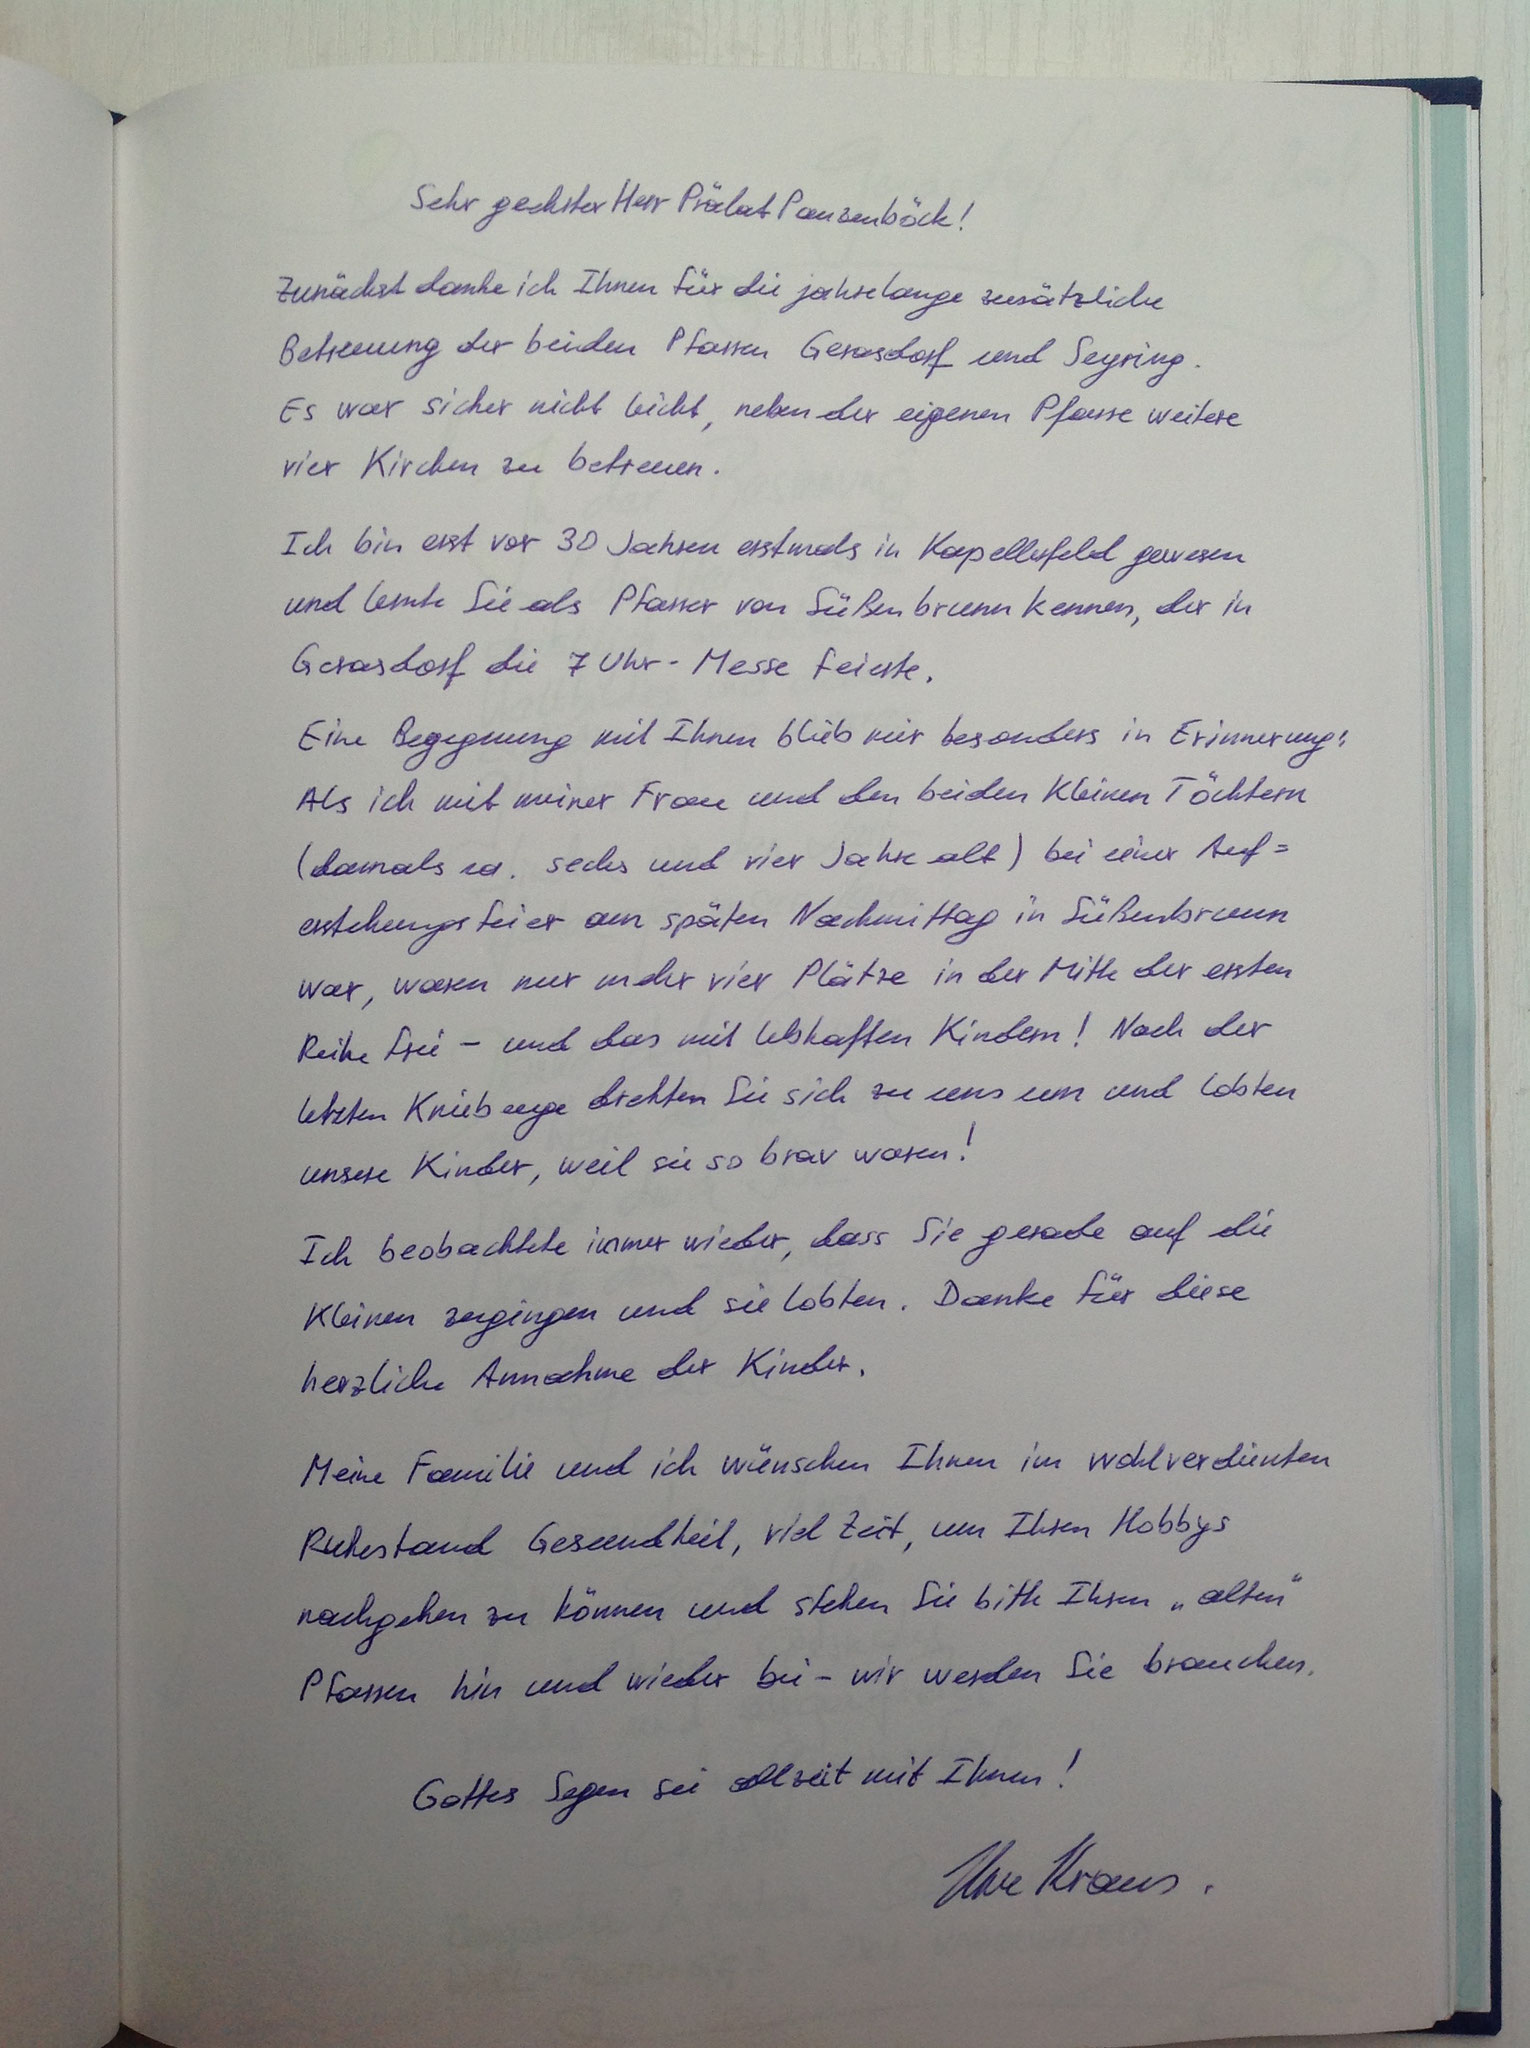 Sehr geehrter Herr Prälat Panzenböck!
Zunächst danke ich Ihnen für die jahrelange zusätzliche
Betreuung der beiden Pfarren Gerasdorf und Seyring.
Es war sicher nicht leicht, neben der eigenen Pfarre weitere
vier Kirchen zu betreuen.
Ich bin erst vor 30 Jahren erstmals in Kapellerfeld gewesen
und lernte Sie als Pfarrer von Süßenbrunn kennen, der in
Gerasdorf die 7 Uhr-Messe feierte.
Eine Begegnung mit Ihnen blieb mir besonders in Erinnerung:
Als ich mit meiner Frau und den beiden kleinen Töchtern
(damals ca. sechs und vier Jahre alt) bei einer Auf=
erstehungsfeier am späten Nachmittag in Süßenbrunn
war, waren nur mehr vier Plätze in der Mitte der ersten
Reihe frei - und das mit lebhaften Kindern! Nach der
letzten Kniebeuge drehten Sie sich zu uns um und lobten
unsere Kinder, weil sie so brav waren!
Ich beobachtete immer wieder, dass Sie gerade auf die
Kleinen zugingen und sie lobten. Danke für diese
herzliche Annahme der Kinder.
Meine Familie und ich wünschen Ihnen im wohlverdienten
Ruhestand Gesundheit, viel Zeit, um Ihren Hobbys
nachgehen zu können und stehen Sie bitte Ihren „alten“
Pfarren hin und wieder bei - wir werden Sie brauchen.
Gottes Segen sei allzeit mit Ihnen!
Uwe Kraus